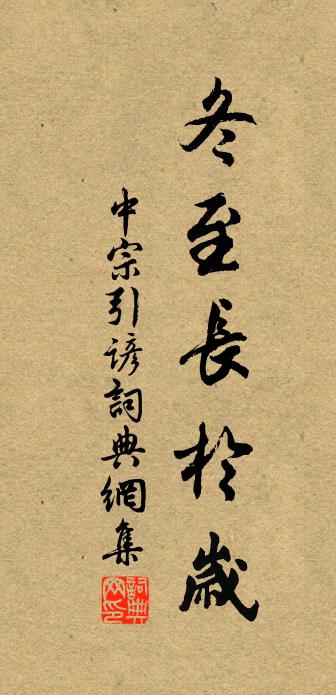 冬至長於歲
中宗引諺詞典網集
詞典網印